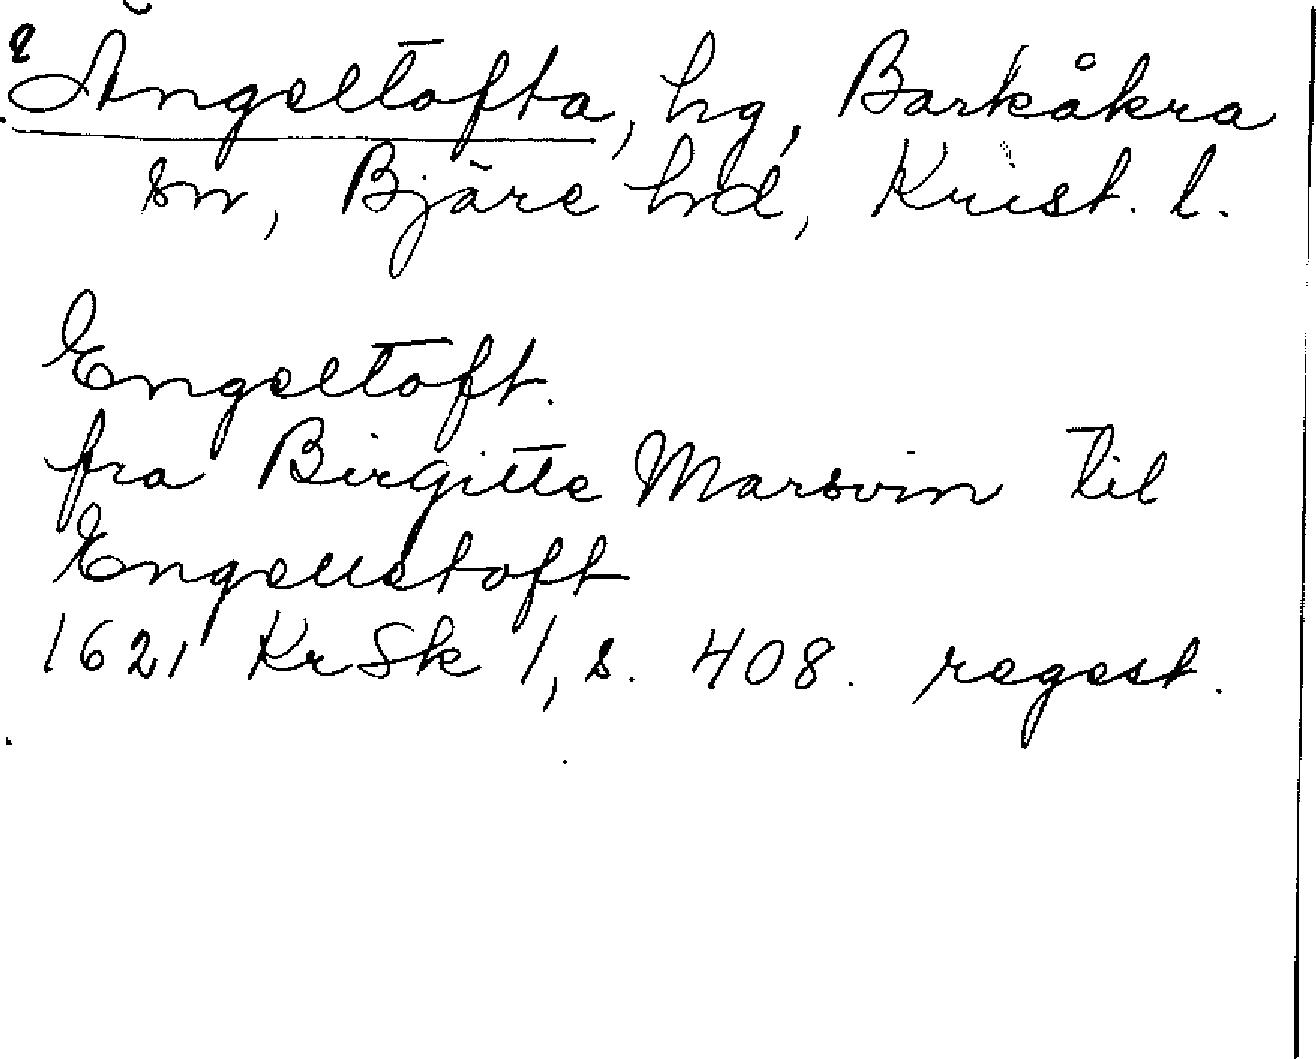 Ängeltofta, hg, Barkåkra
sn, Bjäre hd, Krist. l.
Engeltoft.
fra Birgitte Marsvin til
Engelletoft
1621 KrSk 1, s. 408. regest.